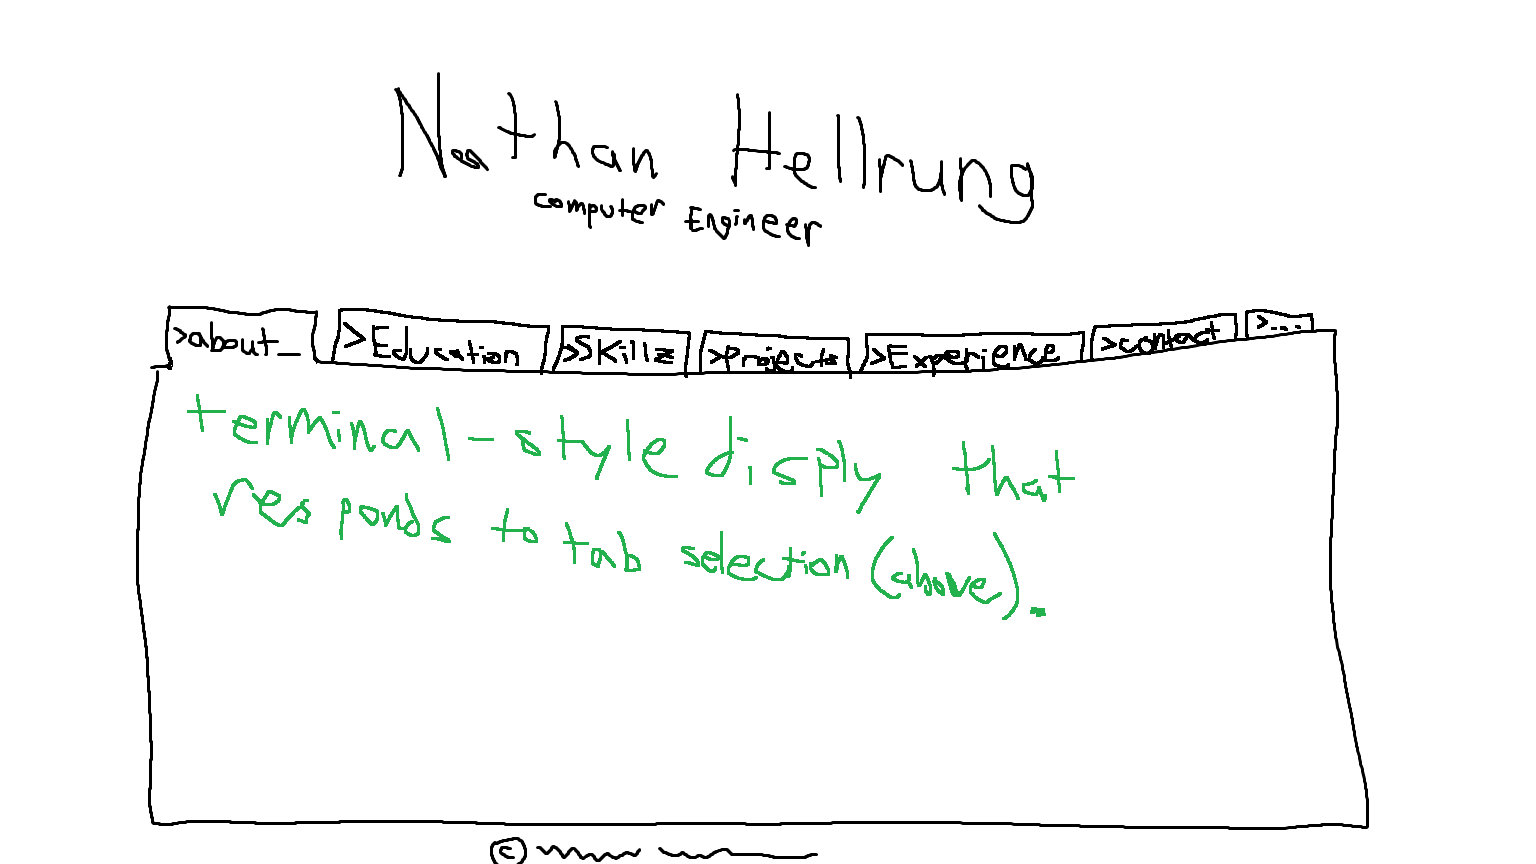 Nathan Hellrung
Computer Engineer
>about_ >Education >Skillz >Projects >Experience >contact >...
terminal-style disply that
responds to tab selection (above).
©